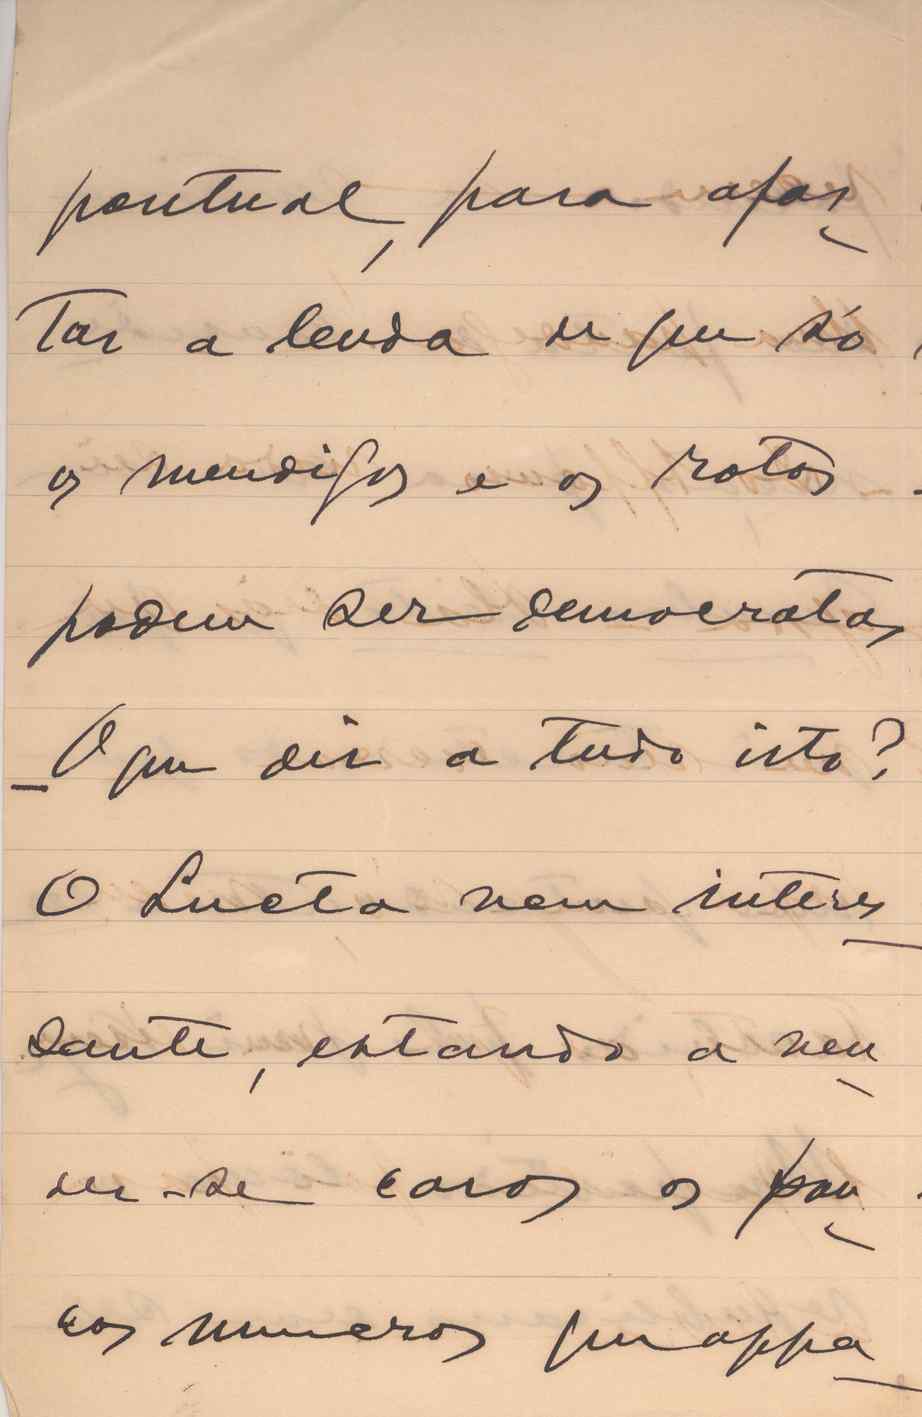 pontual, para afas-
tar a lenda de que só
os mendigos e os rotos
podem ser democratas
_O que diz a tudo isto?
O Lucta vem interes-
sante, estando a ven-
der-se caros os pou-
cos numeros que appa-